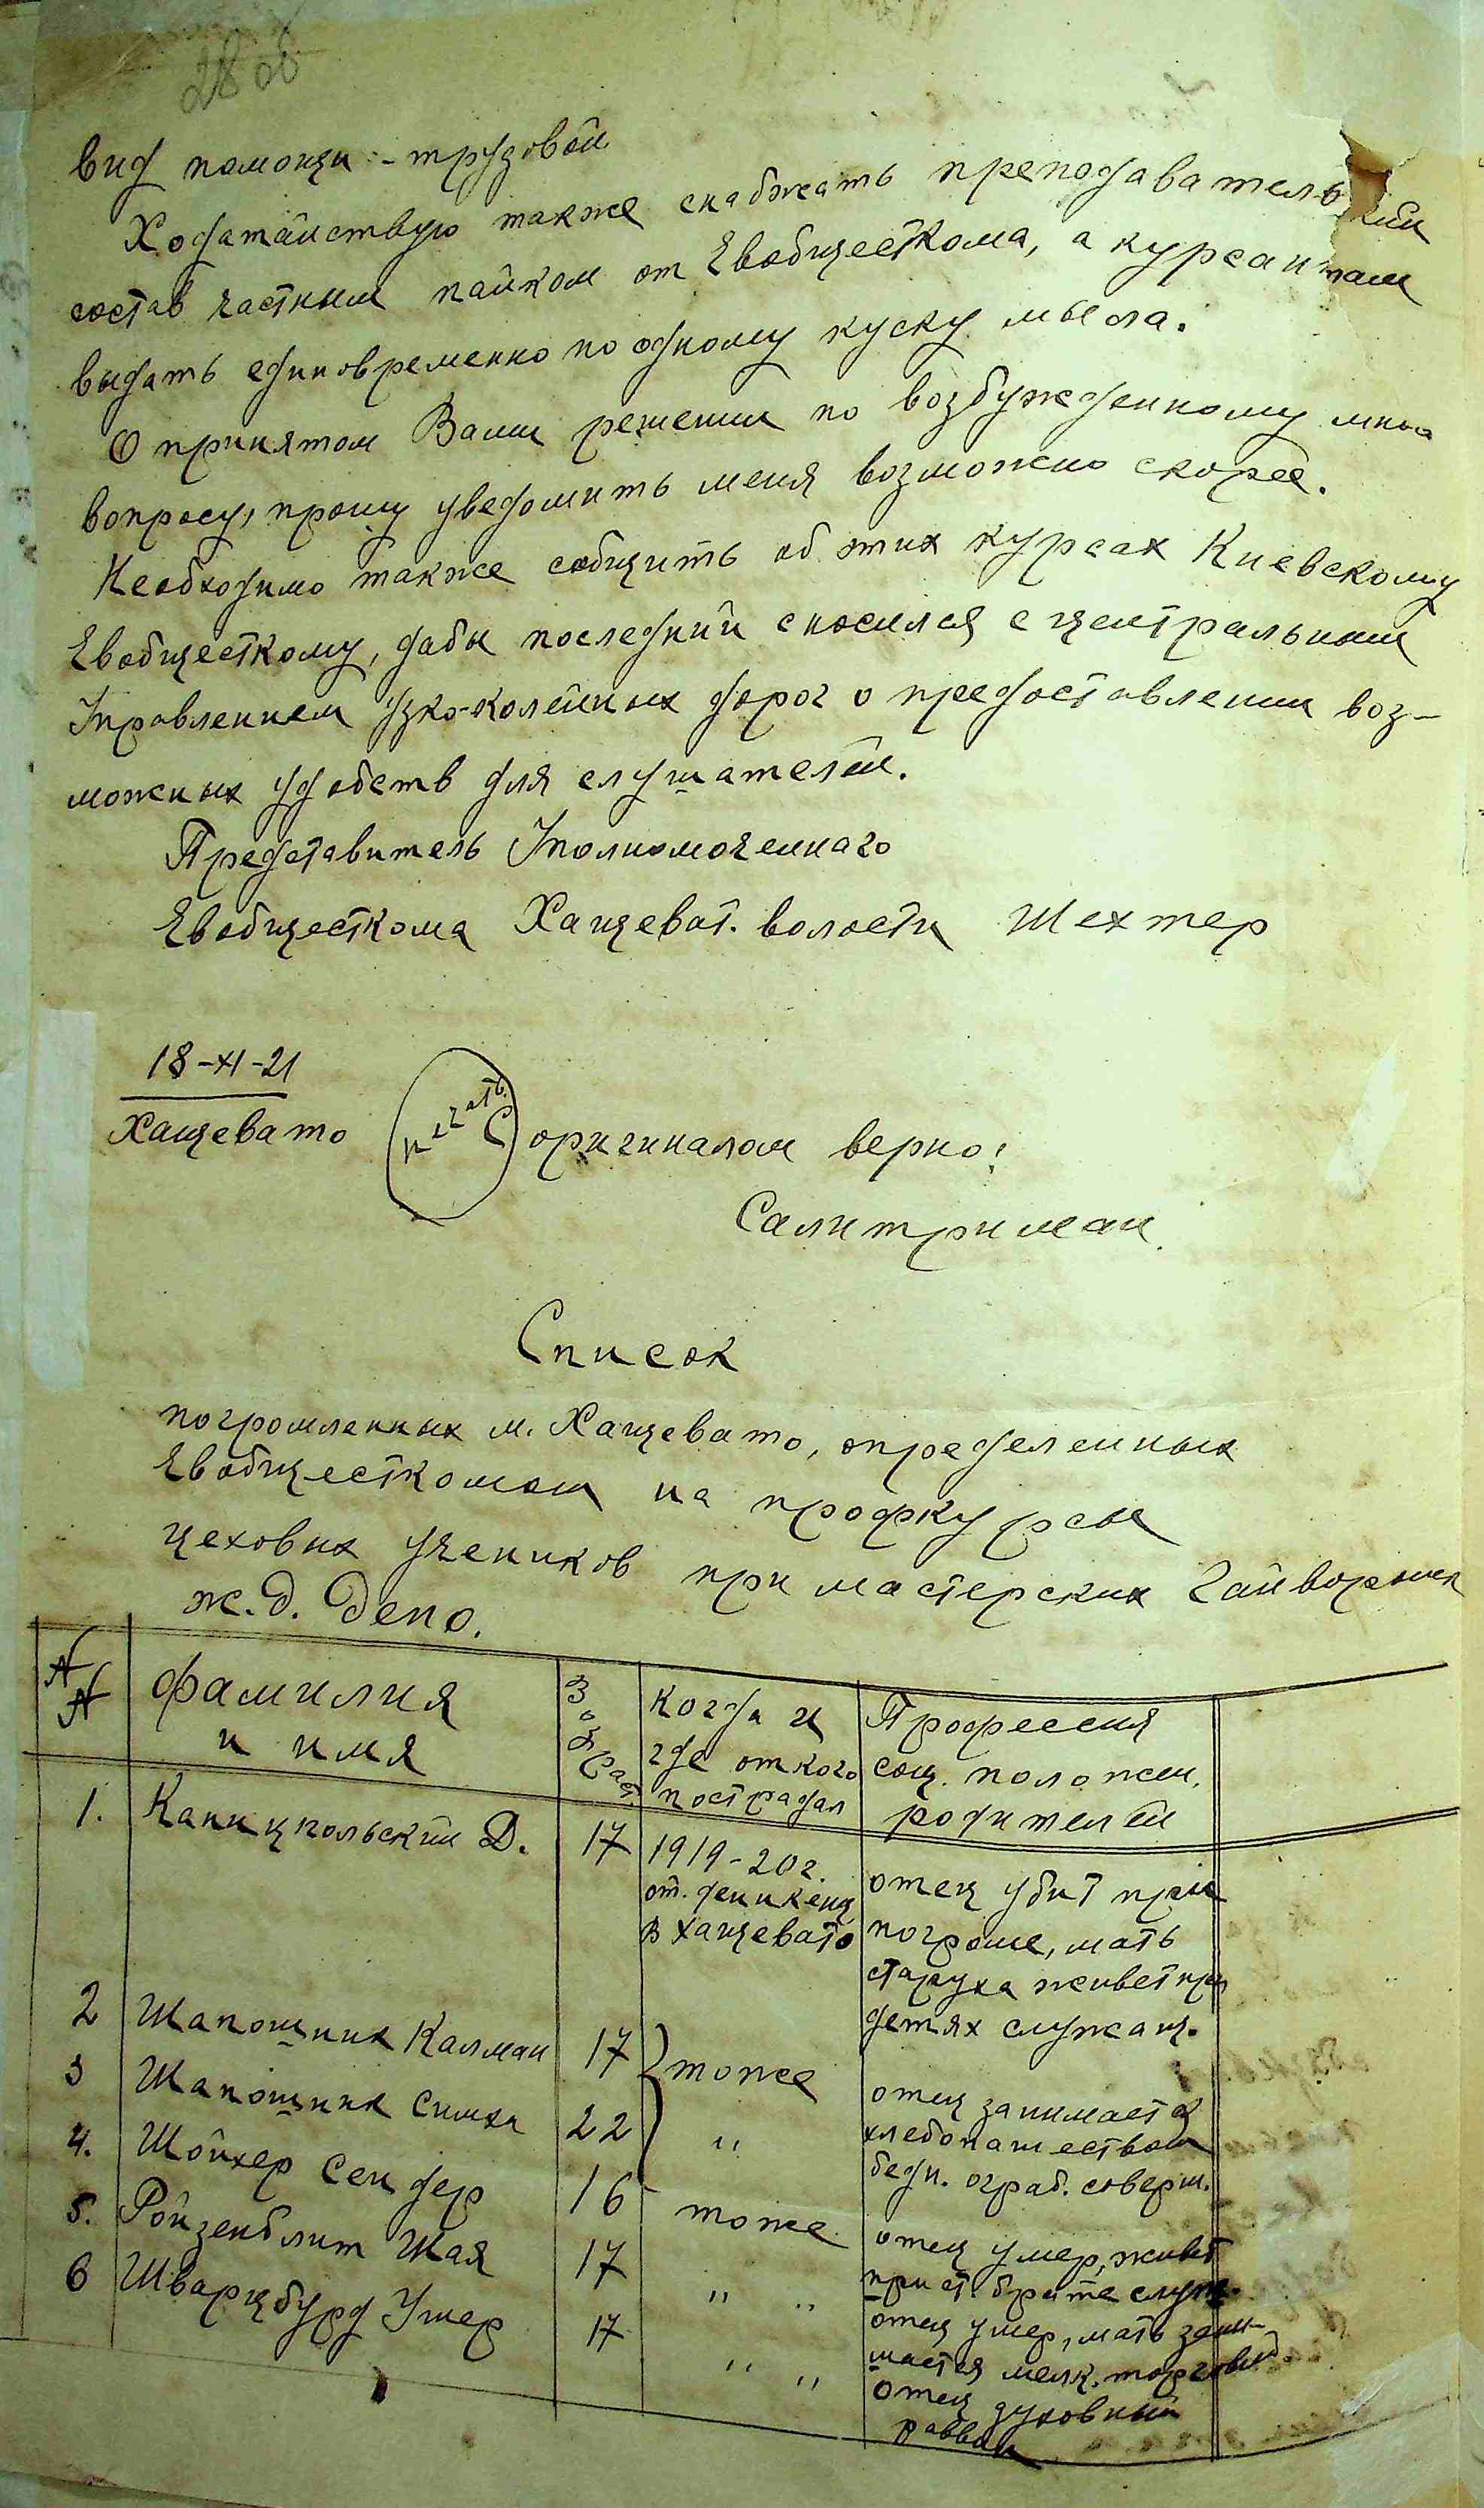 28 об
вид помощи - трудовой.
Ходатайствую также снабжать преподавательский
состав частным пайком от Евобщесткома, а курсантам
выдать единовременно по одному куску мыла.
О принятом Вами решении по возбужденному мною
вопросу, прошу уведомить меня возможно скорее.
Необходимо также сообщить об этих курсах Киевскому
Евобщесткому, дабы последний сносился с центральным
Управлением узко-колейных дорог о предоставлении воз-
можных удобств для слушателей.
Представитель Уполномоченнаго
Евобщесткома Хащеват. волости Шехтер
18-XI-21
Хащевато
печать
С оригиналом верно:
Салитриман.
Список
погромленных м. Хащевато, определенных
Евобщесткомом на профкурсы
цеховых учеников при мастерских Гайворонск
ж.д. Депо.
№№ Фамилия и имя Возраст Когда и где от кого пострадал Профессия соц. положен. родителей
1. Каницпольский Д. 17 1919-20 г. от. деникенц в Хащевато отец убит при
погроме, мать
старуха живет при
детях служащ.
2 Шапошник Калман 17 тоже отец занимается
3 Шапошник Симха 22 " хлебопашеством
бедн. ограб. соверш.
4. Шойхер Сендер 16 тоже отец умер, живет
при ст. брате служ.
5. Ройзенблит Шая 17 " " отец умер, мать зани-
мается мелк. торговлей
6 Шварцбурд Ушер 17 " " отец духовный
раввин